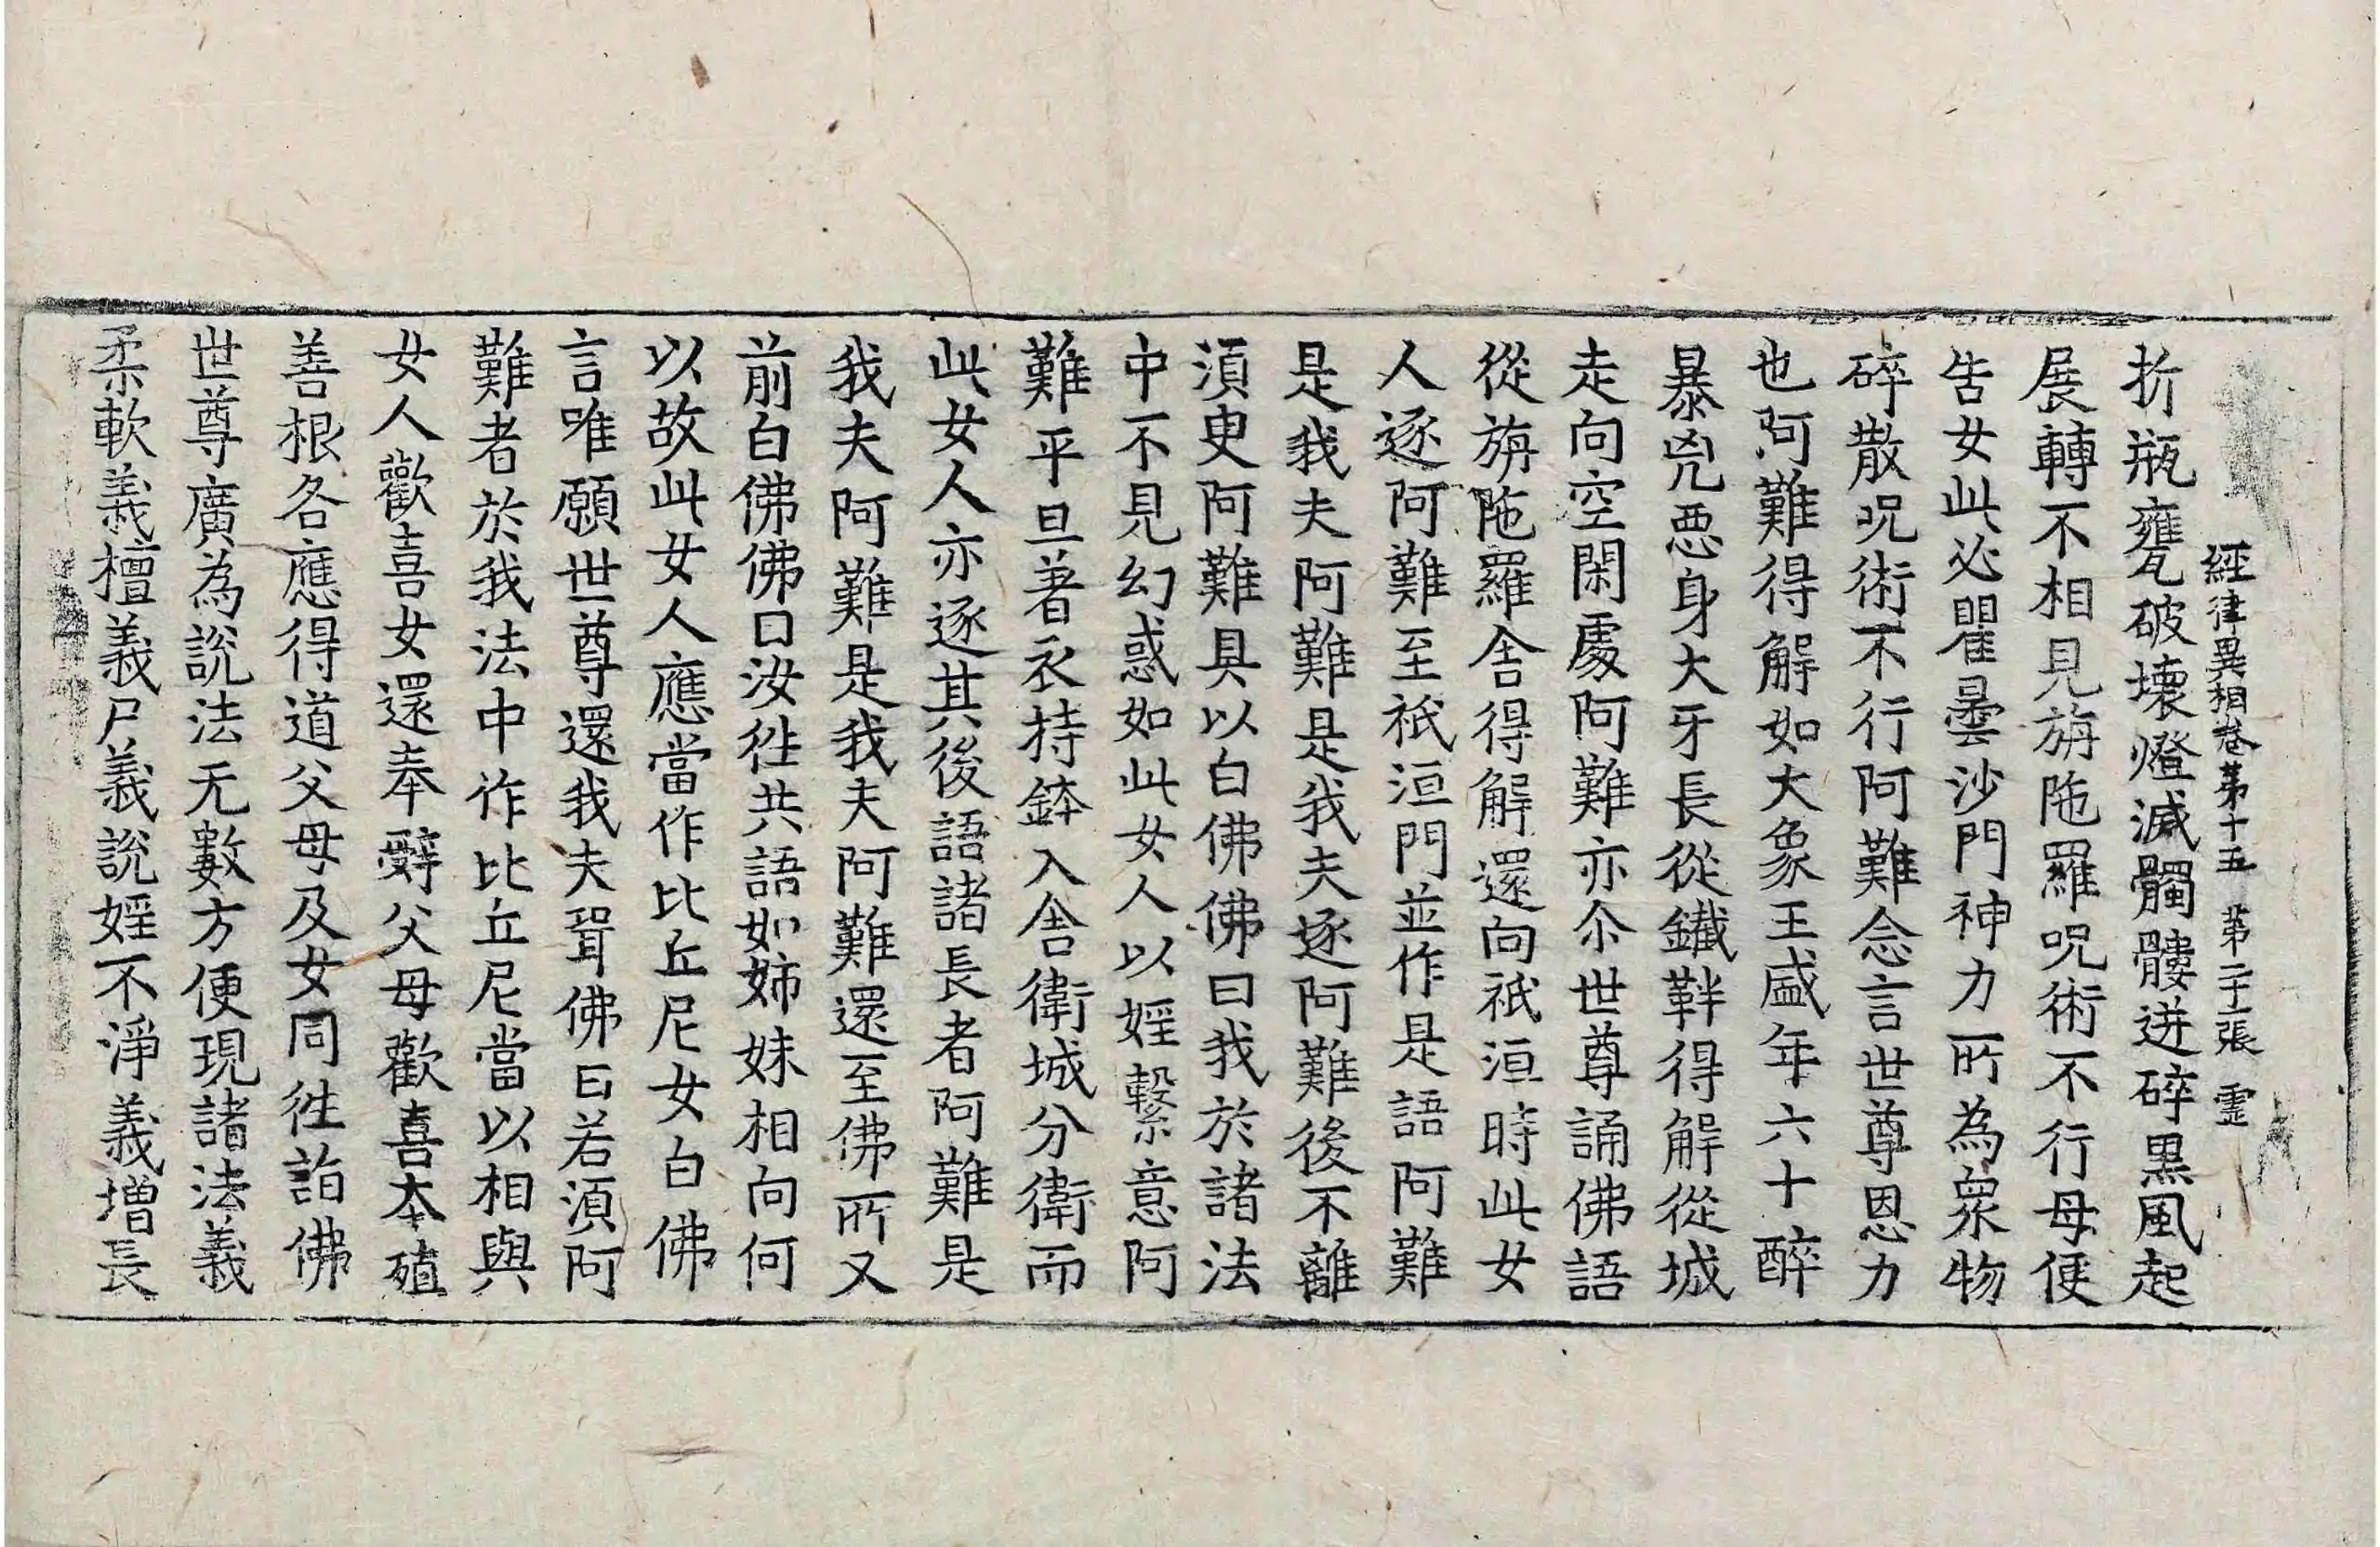 經律異相卷第十五 第二十二張 霊
折瓶甕破壞燈滅髑髏迸碎黒風起
展轉不相見旃陁羅呪術不行母便
告女此必瞿曇沙門神力所為衆物
碎散呪術不行阿難念言世尊恩力
也阿難得解如大象王盛年六十醉
暴兇惡身大牙長從鐵靽得解從城
走向空閑處阿難亦尒世尊誦佛語
從旃陁羅舎得解還向祇洹時此女
人逐阿難至祇洹門並作是語阿難
是我夫阿難是我夫逐阿難後不離
須臾阿難具以白佛佛曰我於諸法
中不見幻惑如此女人以婬繫意阿
難平旦著衣持鉢入舎衛城分衛而
此女人亦逐其後語諸長者阿難是
我夫阿難是我夫阿難還至佛所又
前白佛佛曰汝徃共語如姉妹相向何
以故此女人應當作比丘尼女白佛
言唯願世尊還我夫壻佛曰若須阿
難者於我法中作比丘尼當以相與
女人歡喜女還奉辭父母歡喜本殖
善根各應得道父母及女同徃詣佛
世尊廣為說法无數方便現諸法義
柔軟義檀義尸義說婬不淨義増長